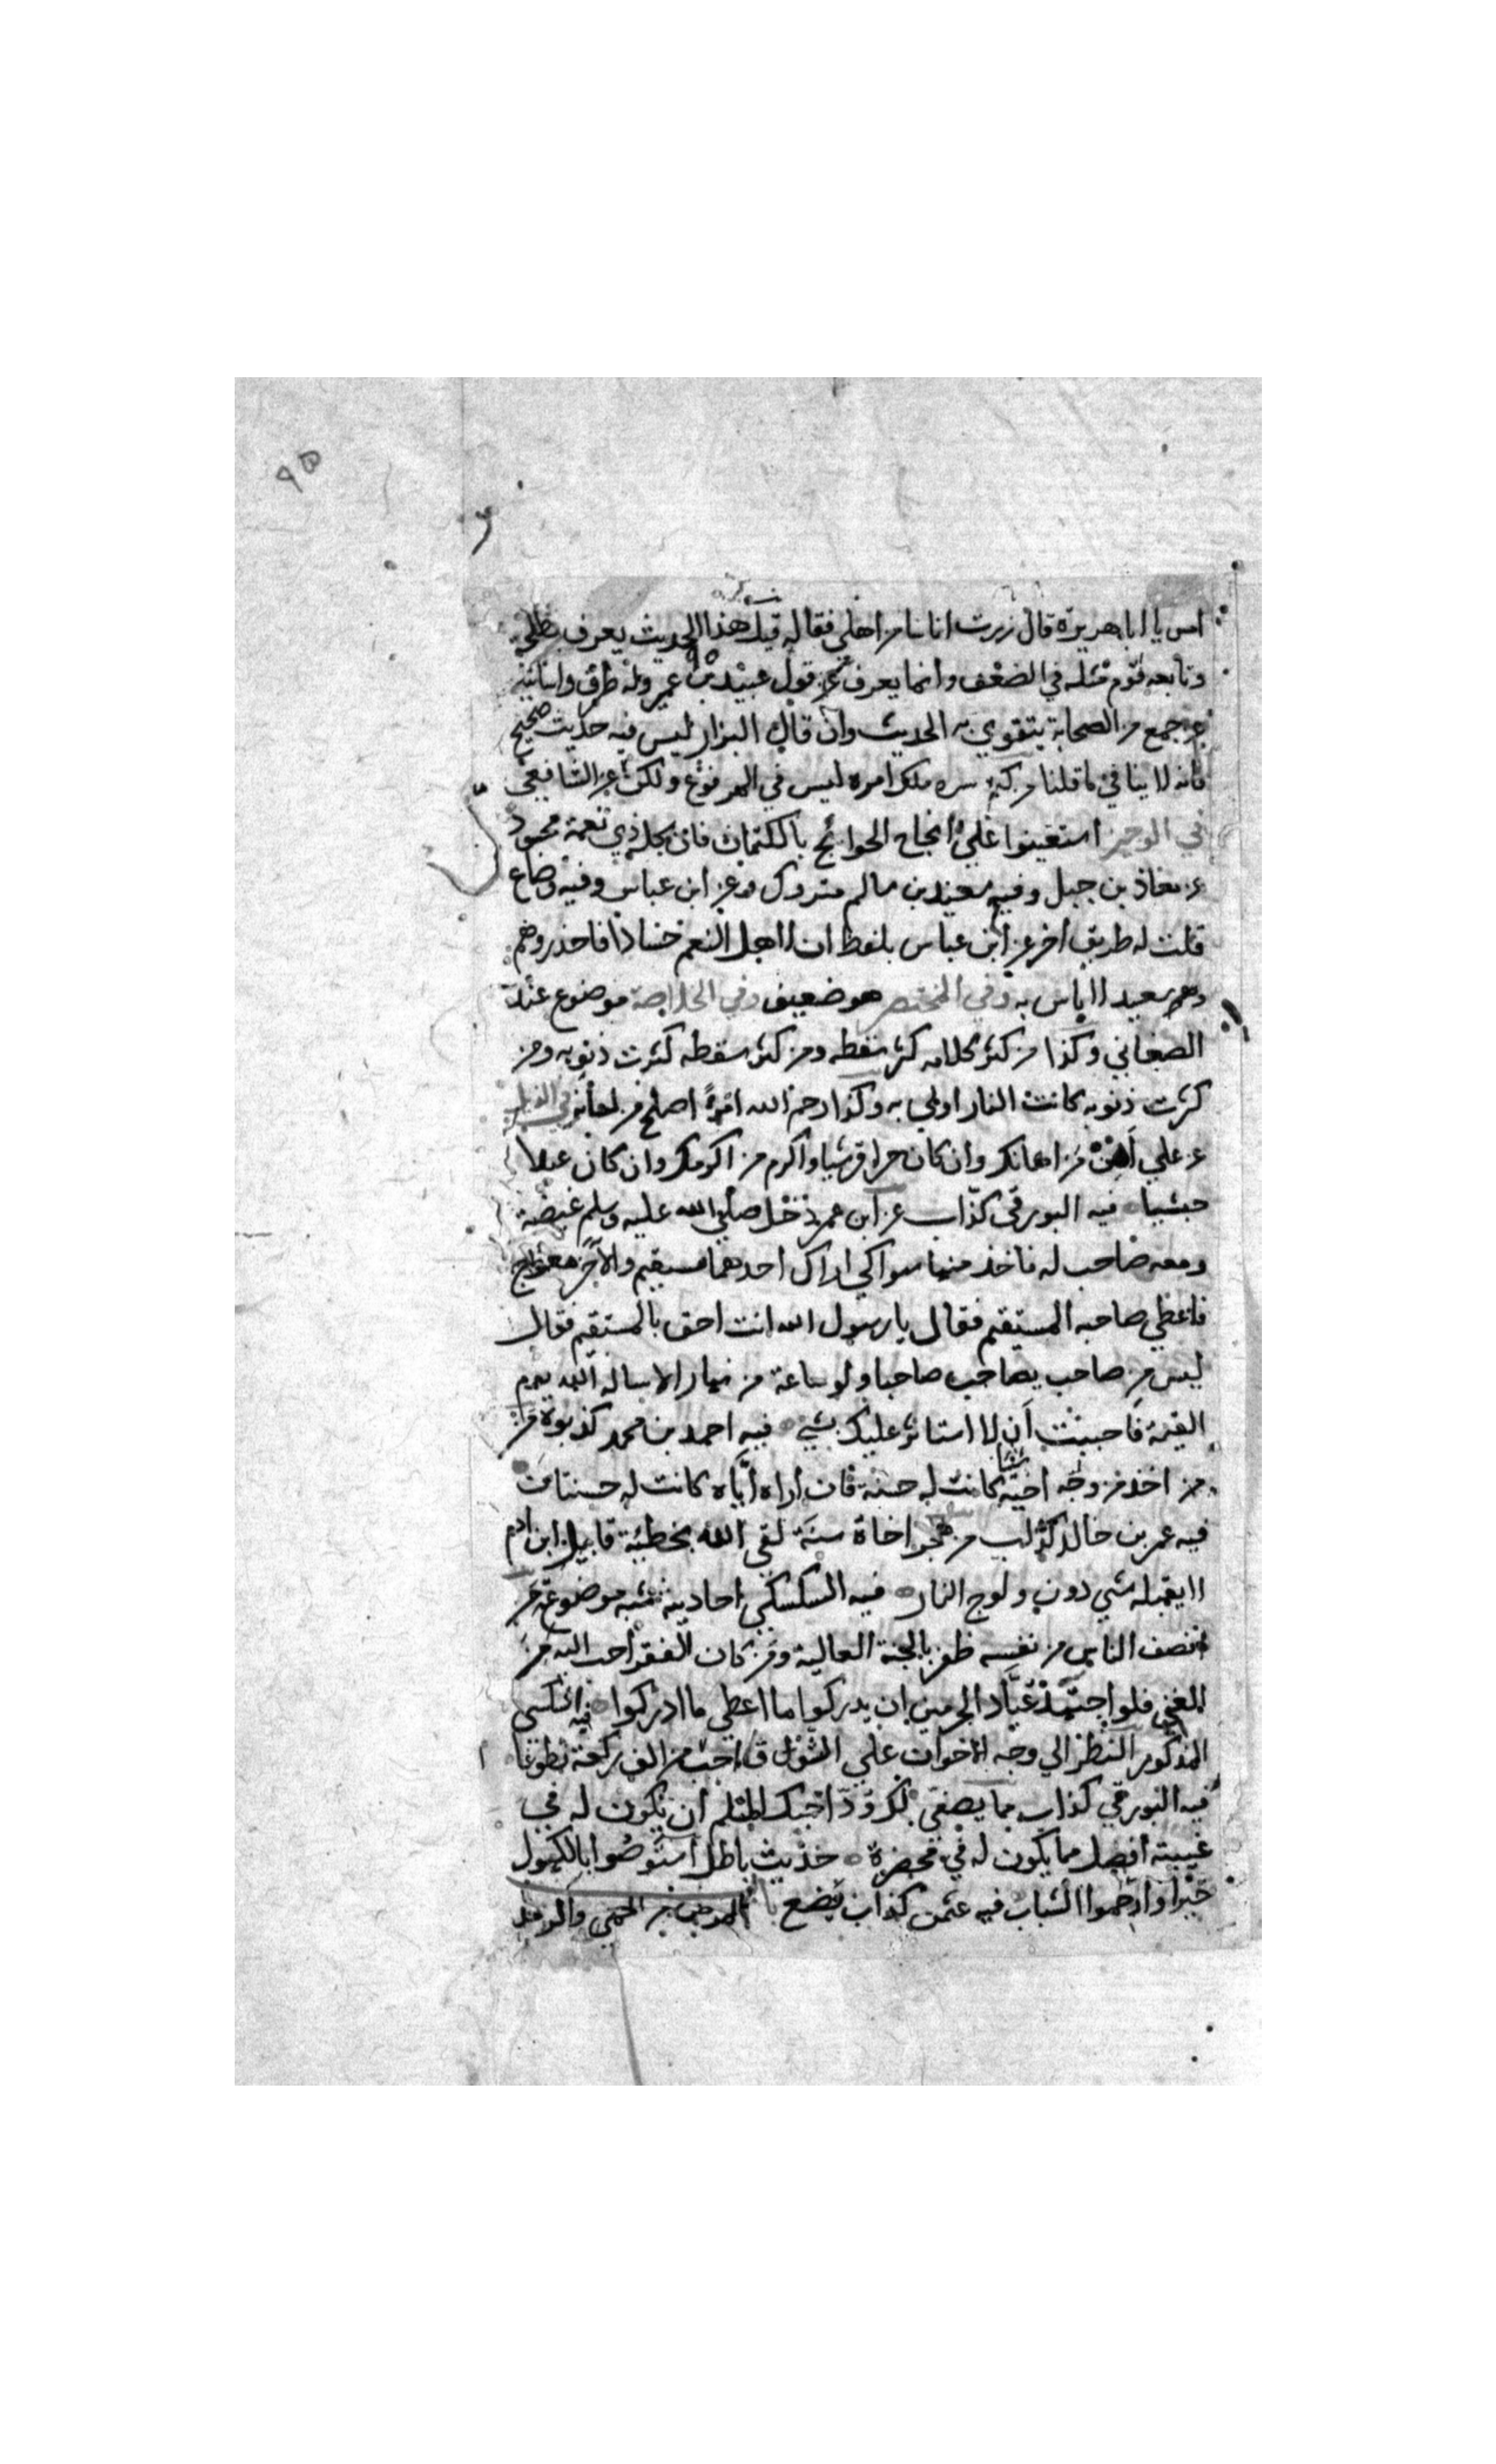 ٩٥
امس يا ابا هريرة قال زرت اناسا من اهلي فقاله قيل هذا الحديث يعرف بطلحة
وتابعه قوم مثله في الضعف وانما يعرف من قول عبيد بن عمير وله طرق واسانيد
عن جمع من الصحابة يتقوي به الحديث وان قال البزار ليس فيه حديث صحيح
فانه لا ينافي ما قلنا من كتم سره ملك امره ليس في المرفوع ولكن عن الشافعي
في الوجيز استعينوا علي انجاح الحوائج بالكتمان فان كل ذي نعمة محسود
عن معاذ بن جبل وفيه سعيد بن سالم متروك وعن ابن عباس وفيه وضاع
قلت له طريق اخر عن ابن عباس بلفظ ان لاهل النعم حسادا فاحذروهم
وعمر سعيد لا باس به وفي المختصر هو ضعيف وفي الخلاصة موضوع عند
الصغاني وكذا من كثر كلامه كثر سقطه ومن كثر سقطه كثرت ذنوبه ومن
كثرت ذنوبه كانت النار اولي به وكذا رحم الله امرءً اصلح من لسانه في الذيل
عن علي اهن من اهانك وان كان حرا قرشيا واكرم من اكرمك وان كان عبدا
حبشيا فيه البورقي كذاب عن ابن عمر دخل صلي الله عليه وسلم غيضة
ومعه صاحب له فاخذ منها سواكي اراك احدهما مستقيم والاخر معوج
فاعطي صاحبه المستقيم فقال يا رسول الله انت احق بالمستقيم فقال
ليس من صاحب يصاحب صاحبا ولو ساعة من نهار الا ساله الله يوم
القيمة فاحببت ان لا استاثر عليك بشي فيه احمد بن محمد كذبوه
من اخذ من وجه اخيه شيئا كانت له حسنة فان اراه اياه كانت له حسنتان
فيه عمر بن خالد كذاب من هجر اخاه سنة لقي الله بخطيئة قابيل ابن ادم
لا يقبله شي دون ولوج النار فيه السكسكي احاديثه شبه موضوعة من
انصف الناس من نفسه ظفر بالجنة العالية ومن كان الفقر احب اليه من
الغني فلو اجتهد عباد الحرمين ان يدركوا ما اعطي ما ادركوا فيه السكسكي
المذكور النظر الي وجه الاخوان علي الشوق احب من الف ركعة تطوعا
فيه البورقي كذاب مما يصفي لك ود اخيك المسلم ان يكون له في
غيبته افضل مما يكون له في محضره حديث باطل استوصوا بالكهول
خيرا وارحموا الشباب فيه عثمن كذاب يضع